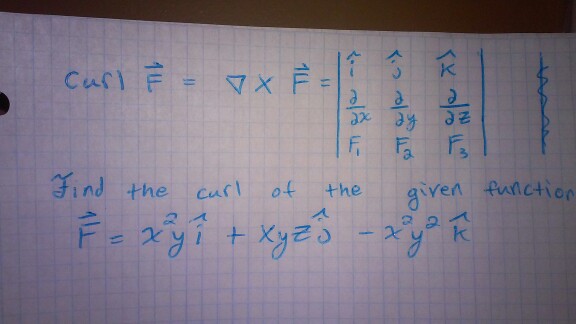 Curl F⃗ = ∇ × F⃗ = | î ĵ k̂ |
| ∂/∂x ∂/∂y ∂/∂z |
| F₁ F₂ F₃ |
Find the curl of the given function
F⃗ = x²y î + xyz ĵ - x²y² k̂